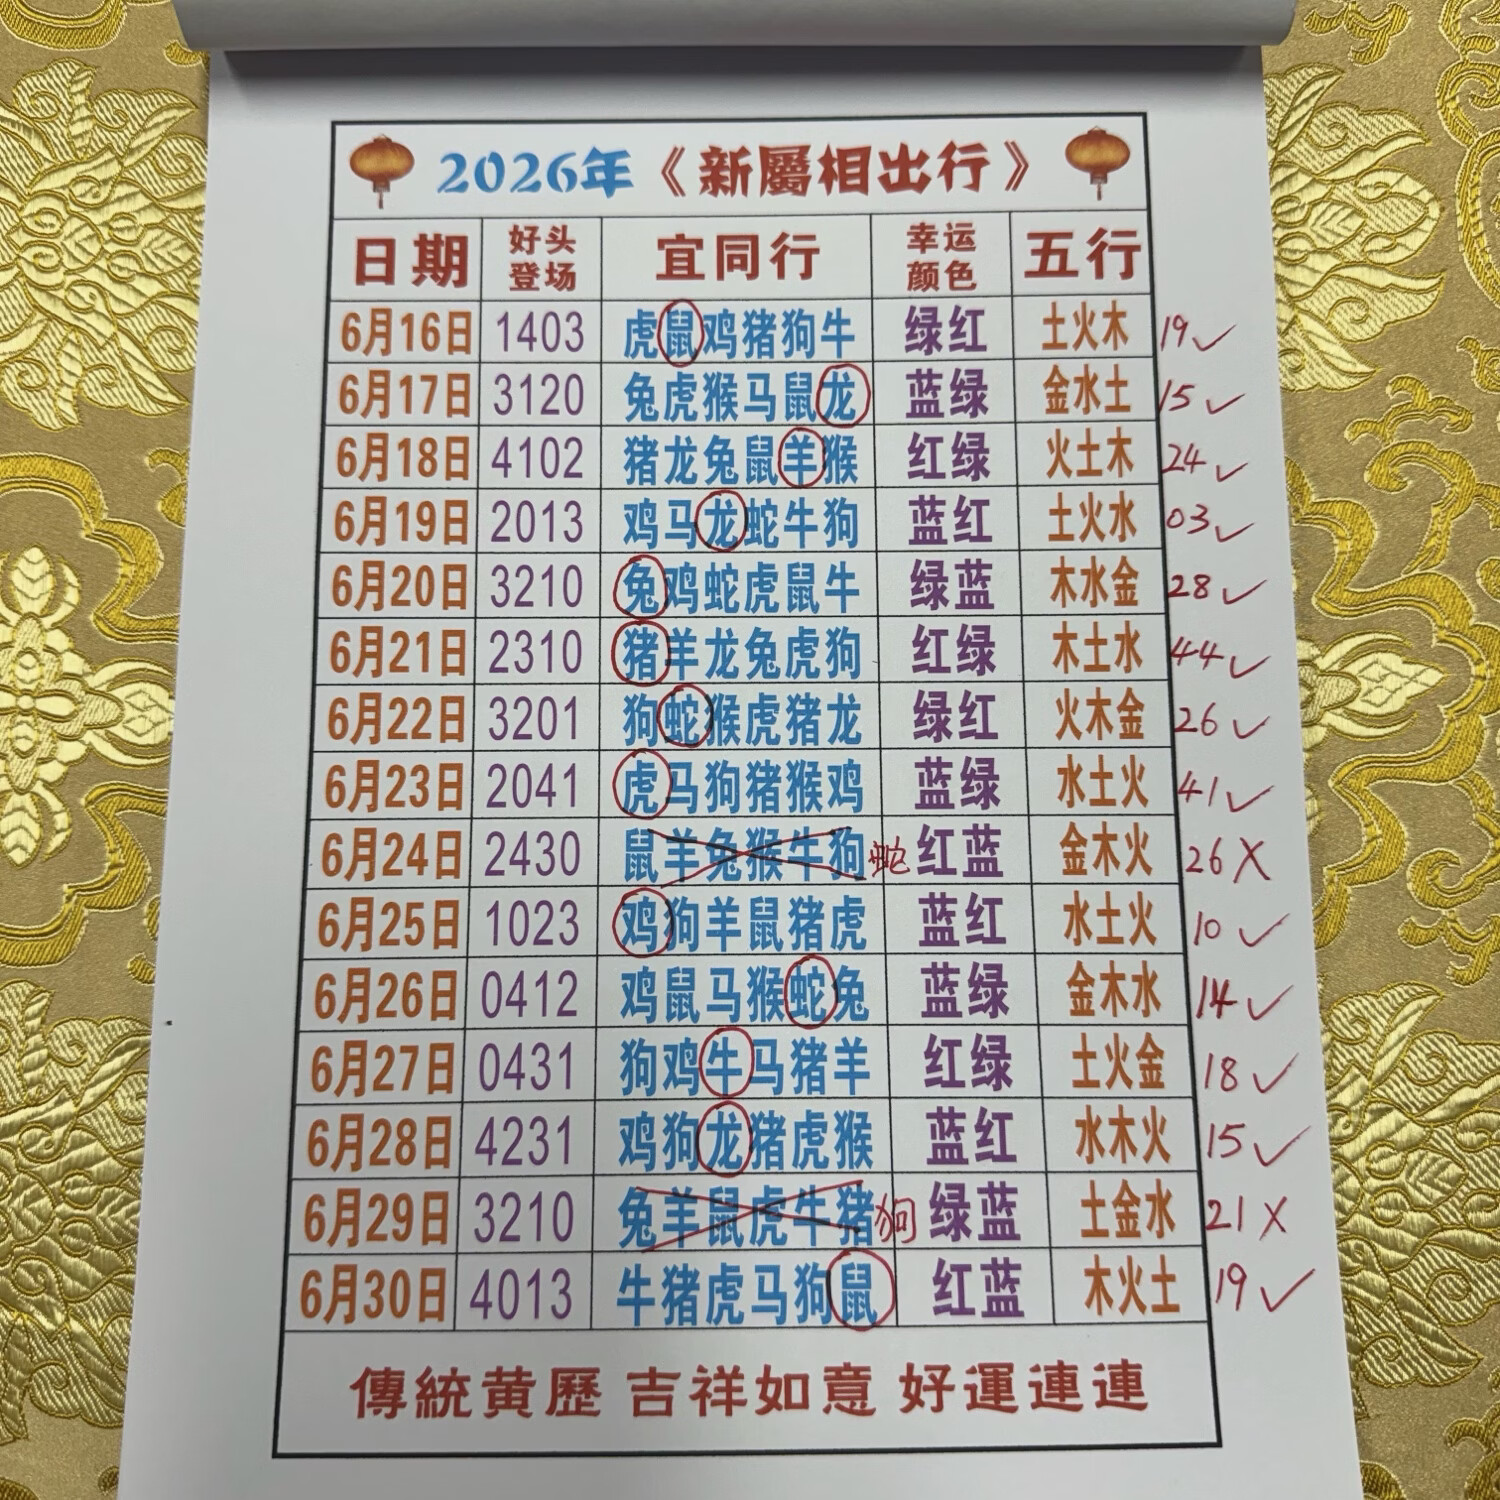 2026年《新屬相出行》
日期 好头登场 宜同行 幸运颜色 五行
6月16日 1403 虎鼠鸡猪狗牛 绿红 土火木 19✓
6月17日 3120 兔虎猴马鼠龙 蓝绿 金水土 15✓
6月18日 4102 猪龙兔鼠羊猴 红绿 火土木 24✓
6月19日 2013 鸡马龙蛇牛狗 蓝红 土火水 03✓
6月20日 3210 兔鸡蛇虎鼠牛 绿蓝 木水金 28✓
6月21日 2310 猪羊龙兔虎狗 红绿 木土水 44✓
6月22日 3201 狗蛇猴虎猪龙 绿红 火木金 26✓
6月23日 2041 虎马狗猪猴鸡 蓝绿 水土火 41✓
6月24日 2430 鼠羊兔猴牛狗 蛇 红蓝 金木火 26X
6月25日 1023 鸡狗羊鼠猪虎 蓝红 水土火 10✓
6月26日 0412 鸡鼠马猴蛇兔 蓝绿 金木水 14✓
6月27日 0431 狗鸡牛马猪羊 红绿 土火金 18✓
6月28日 4231 鸡狗龙猪虎猴 蓝红 水木火 15✓
6月29日 3210 兔羊鼠虎牛猪 狗 绿蓝 土金水 21X
6月30日 4013 牛猪虎马狗鼠 红蓝 木火土 19✓
傳統黄歷 吉祥如意 好運連連